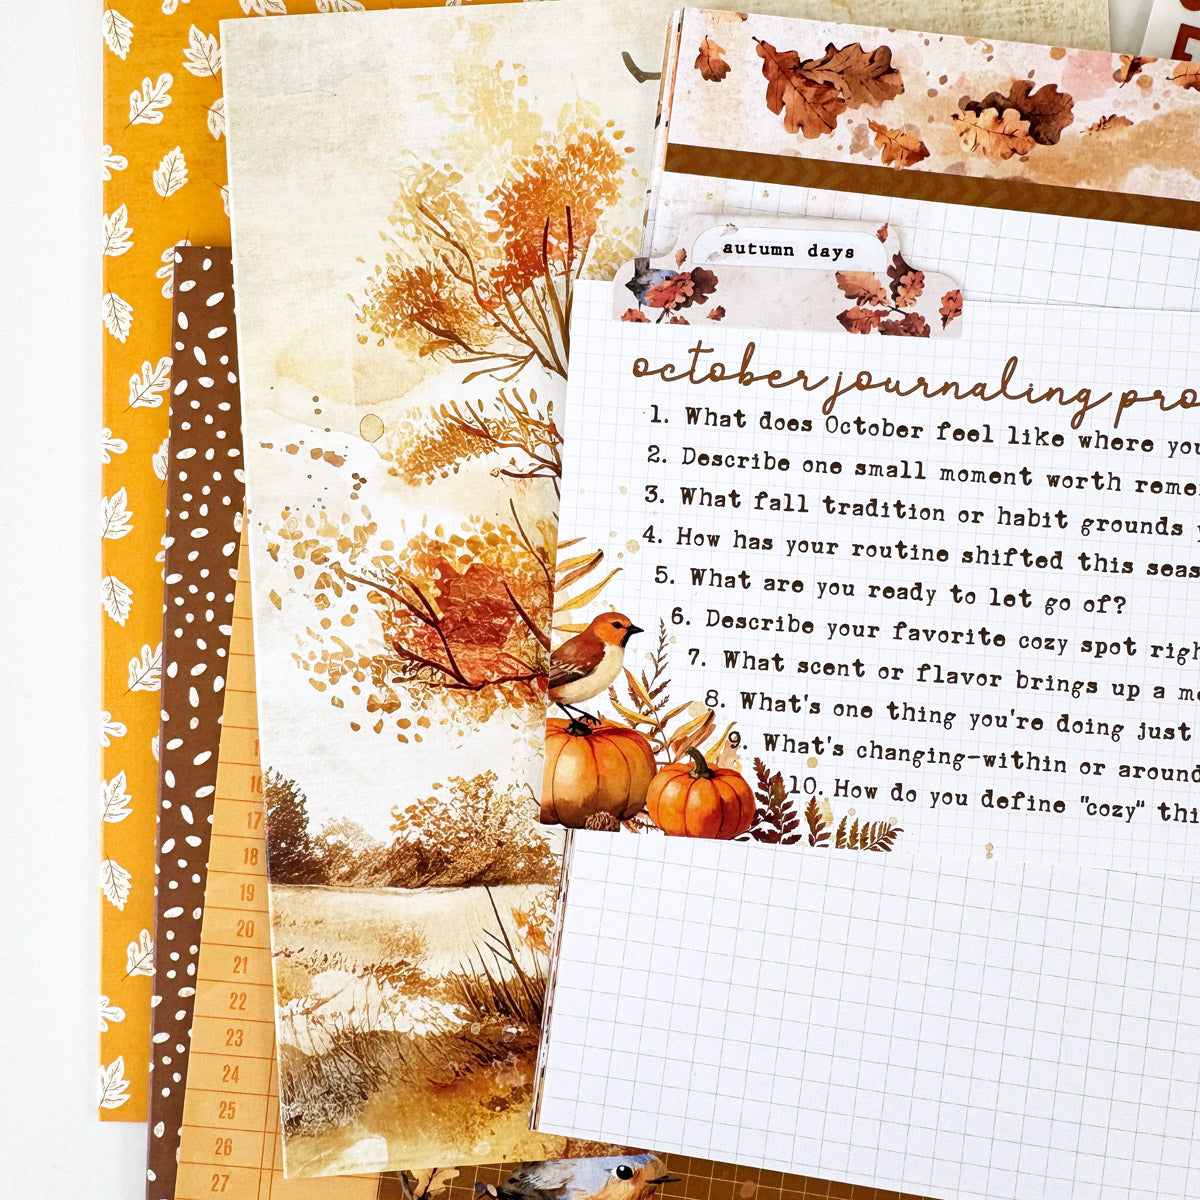 autumn days
october journaling
1. What does October feel like where
2. Describe one small moment worth
3. What fall tradition or habit grounds
4. How has your routine shifted this
5. What are you ready to let go of?
6. Describe your favorite cozy spot
7. What scent or flavor brings up a
8. What's one thing you're doing just
9. What's changing-within or around
10. How do you define "cozy"
17
18
19
20
21
22
23
24
25
26
27